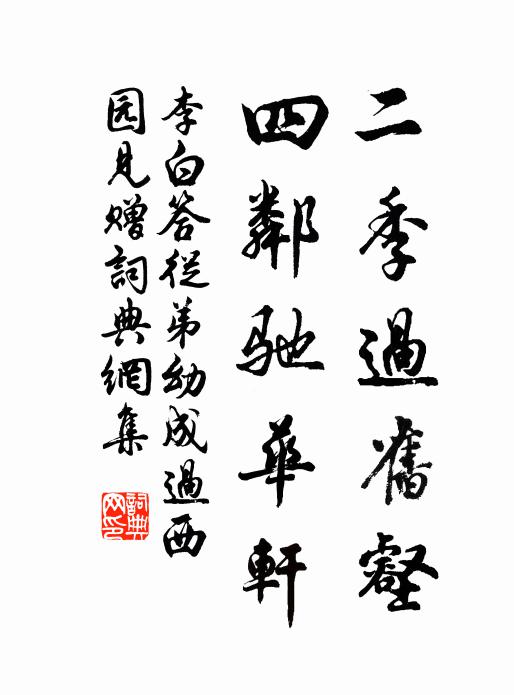 二季過舊壑
四鄰馳華軒
李白答從弟幼成過西
园見赠詞典網集
詞典
网印